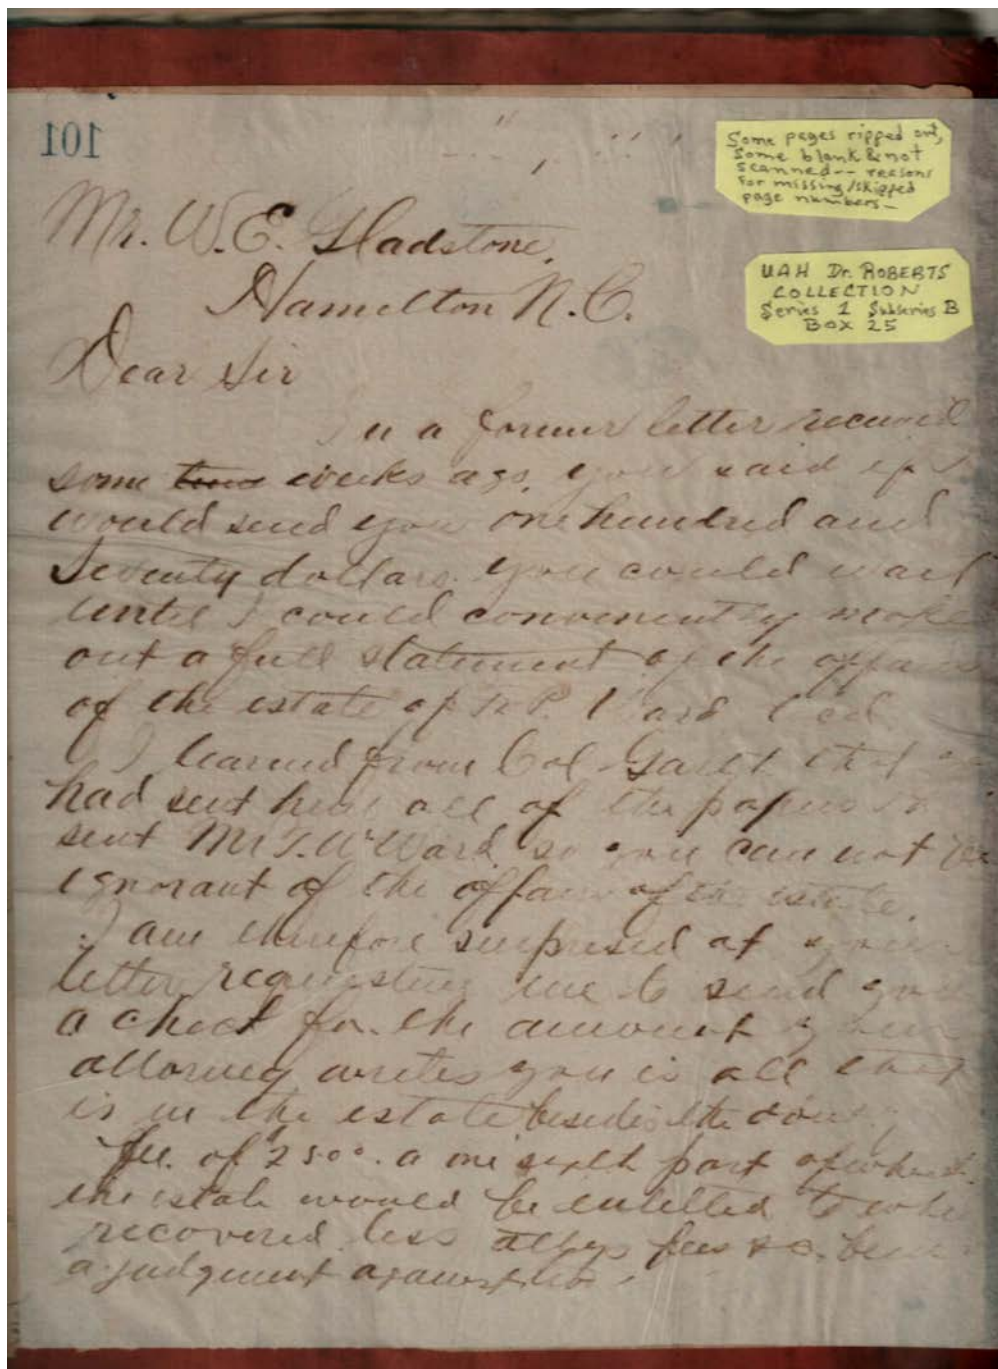 101
Some pages ripped out,
some blank & not
scanned -- reasons
for missing/skipped
page numbers -
Mr. W. E. Gladstone,
Hamilton N. C.
UAH Dr. ROBERTS
COLLECTION
Series 1 Subseries B
BOX 25
Dear Sir
In a former letter received
some weeks ago, you said if I
would send you one hundred and
Seventy dollars. you could wait
until I could conveniently make
out a full statement of the affairs
of the estate of P. Ward
I learned from Col Garth that
had sent him all of the papers
sent Mr T. W. Ward, so you can not be
ignorant of the affairs of the estate.
I am therefore surprised at your
letter requesting me to send you
a check for the amount your
attorney writes you is all that
is in the estate besides the
fee. of $2500. a one sixth part of which
the estate would be entitled to when
recovered less attys fees &c.
a judgment against